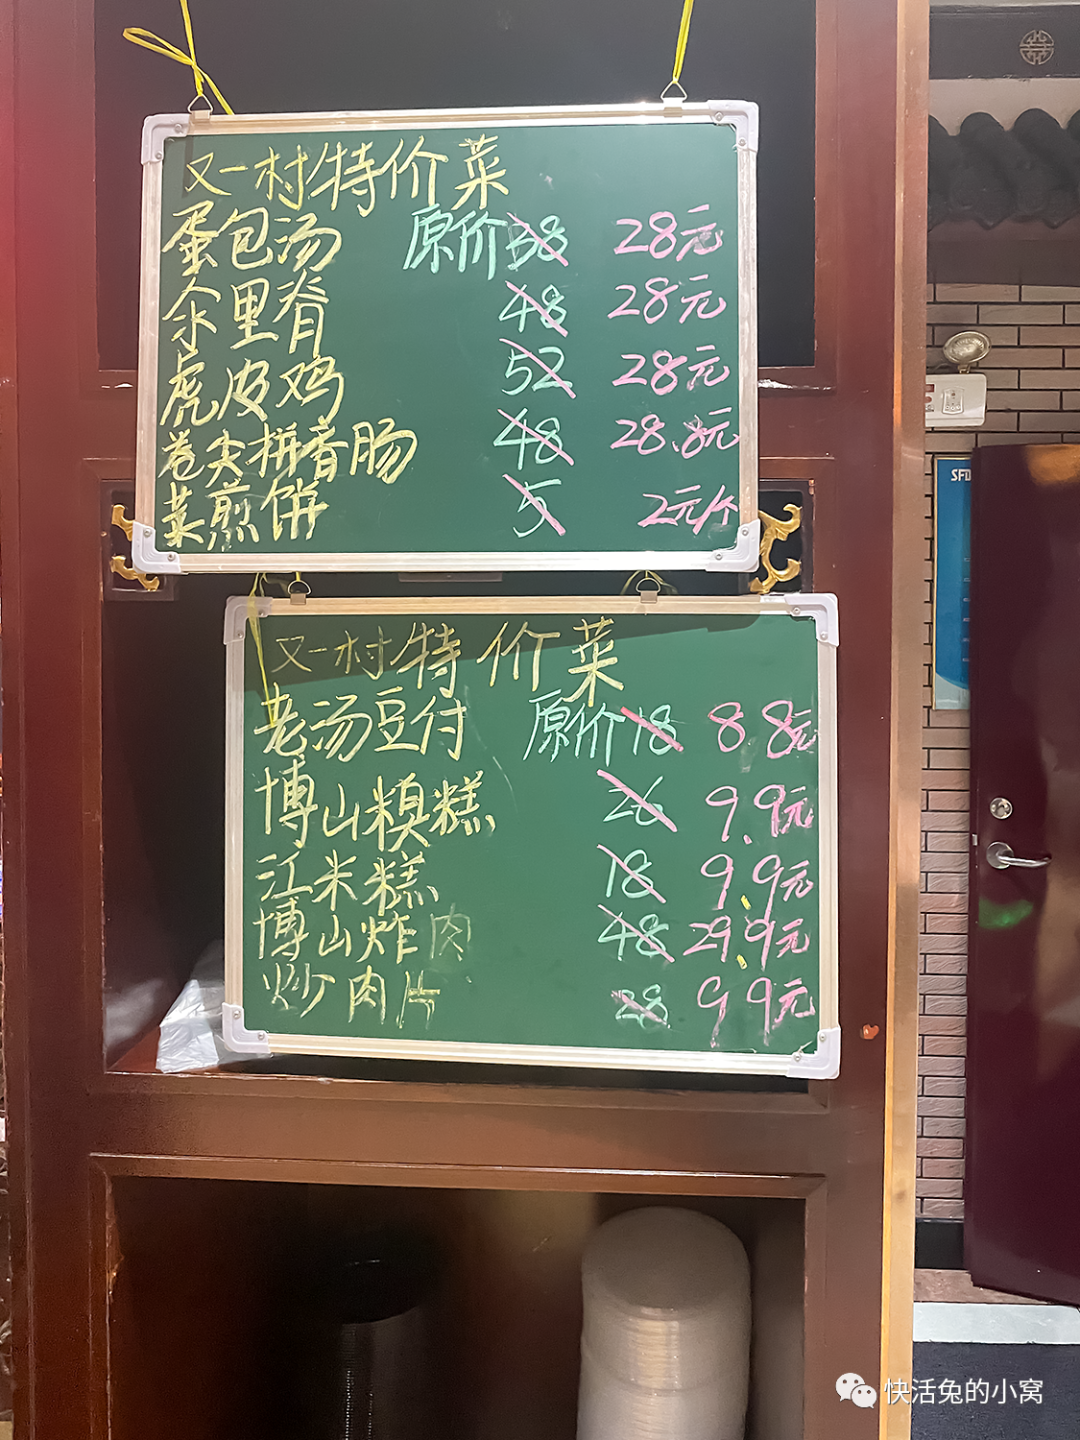 又一村特价菜
蛋包汤 原价38 28元
汆里脊 48 28元
虎皮鸡 52 28元
卷尖拼香肠 48 28.8元
菜煎饼 5 2元/个
又一村特价菜
老汤豆付 原价18 8.8元
博山糗糕 26 9.9元
江米糕 18 9.9元
博山炸肉 48 29.9元
炒肉片 28 9.9元
SFD
快活兔的小窝